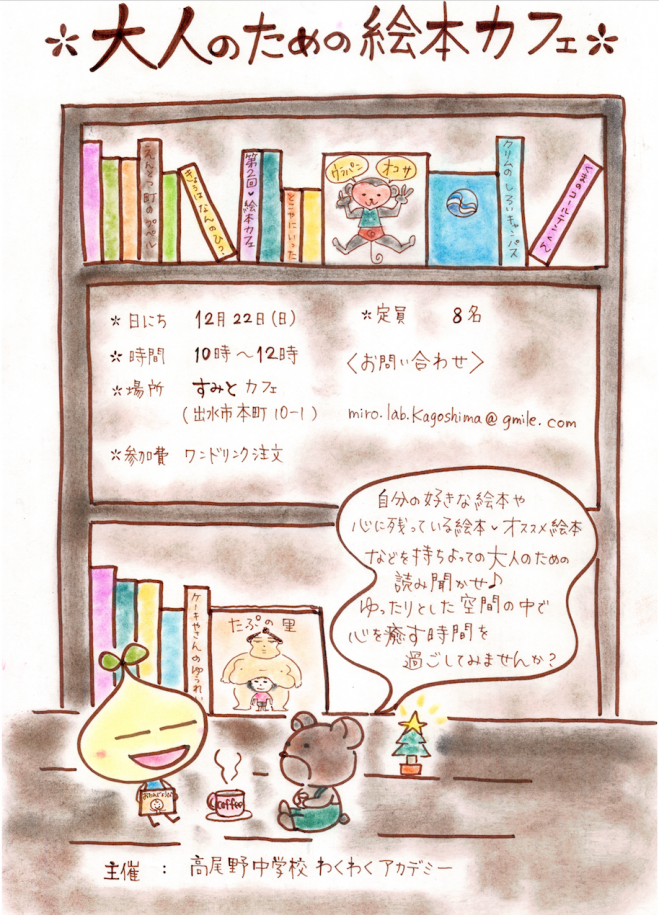 *大人のための絵本カフェ*
えんとつ町のプペル
きょうはなんのひ?
第2回♥絵本カフェ
とこやにいった
ウラパン
オコサ
クリムのしろいキャンバス
くまのコールテンくん
*日にち 12月22日(日)
*定員 8名
*時間 10時〜12時
〈お問い合わせ〉
*場所 すみとカフェ
(出水市本町10-1)
miro.lab.Kagoshima@gmile.com
*参加費 ワンドリンク注文
自分の好きな絵本や
心に残っている絵本♥オススメ絵本
などを持ちよっての大人のための
読み聞かせ♪
ゆったりとした空間の中で
心を癒す時間を
過ごしてみませんか?
ケーキやさんのゆうれい
たぷの里
coffee
主催 : 高尾野中学校 わくわくアカデミー